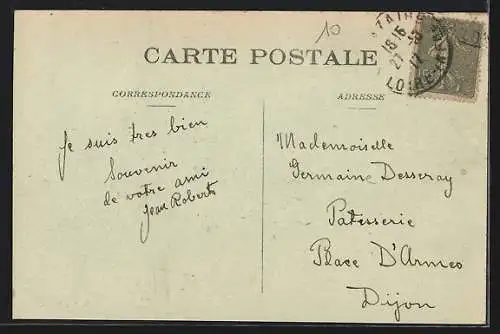 10
CARTE POSTALE
CORRESPONDANCE
Je suis tres bien
Souvenir
de votre ami
Jean Roberts
ADRESSE
Mademoiselle
Germaine Desseray
Patisserie
Place D'Armes
Dijon
18 15
27
17